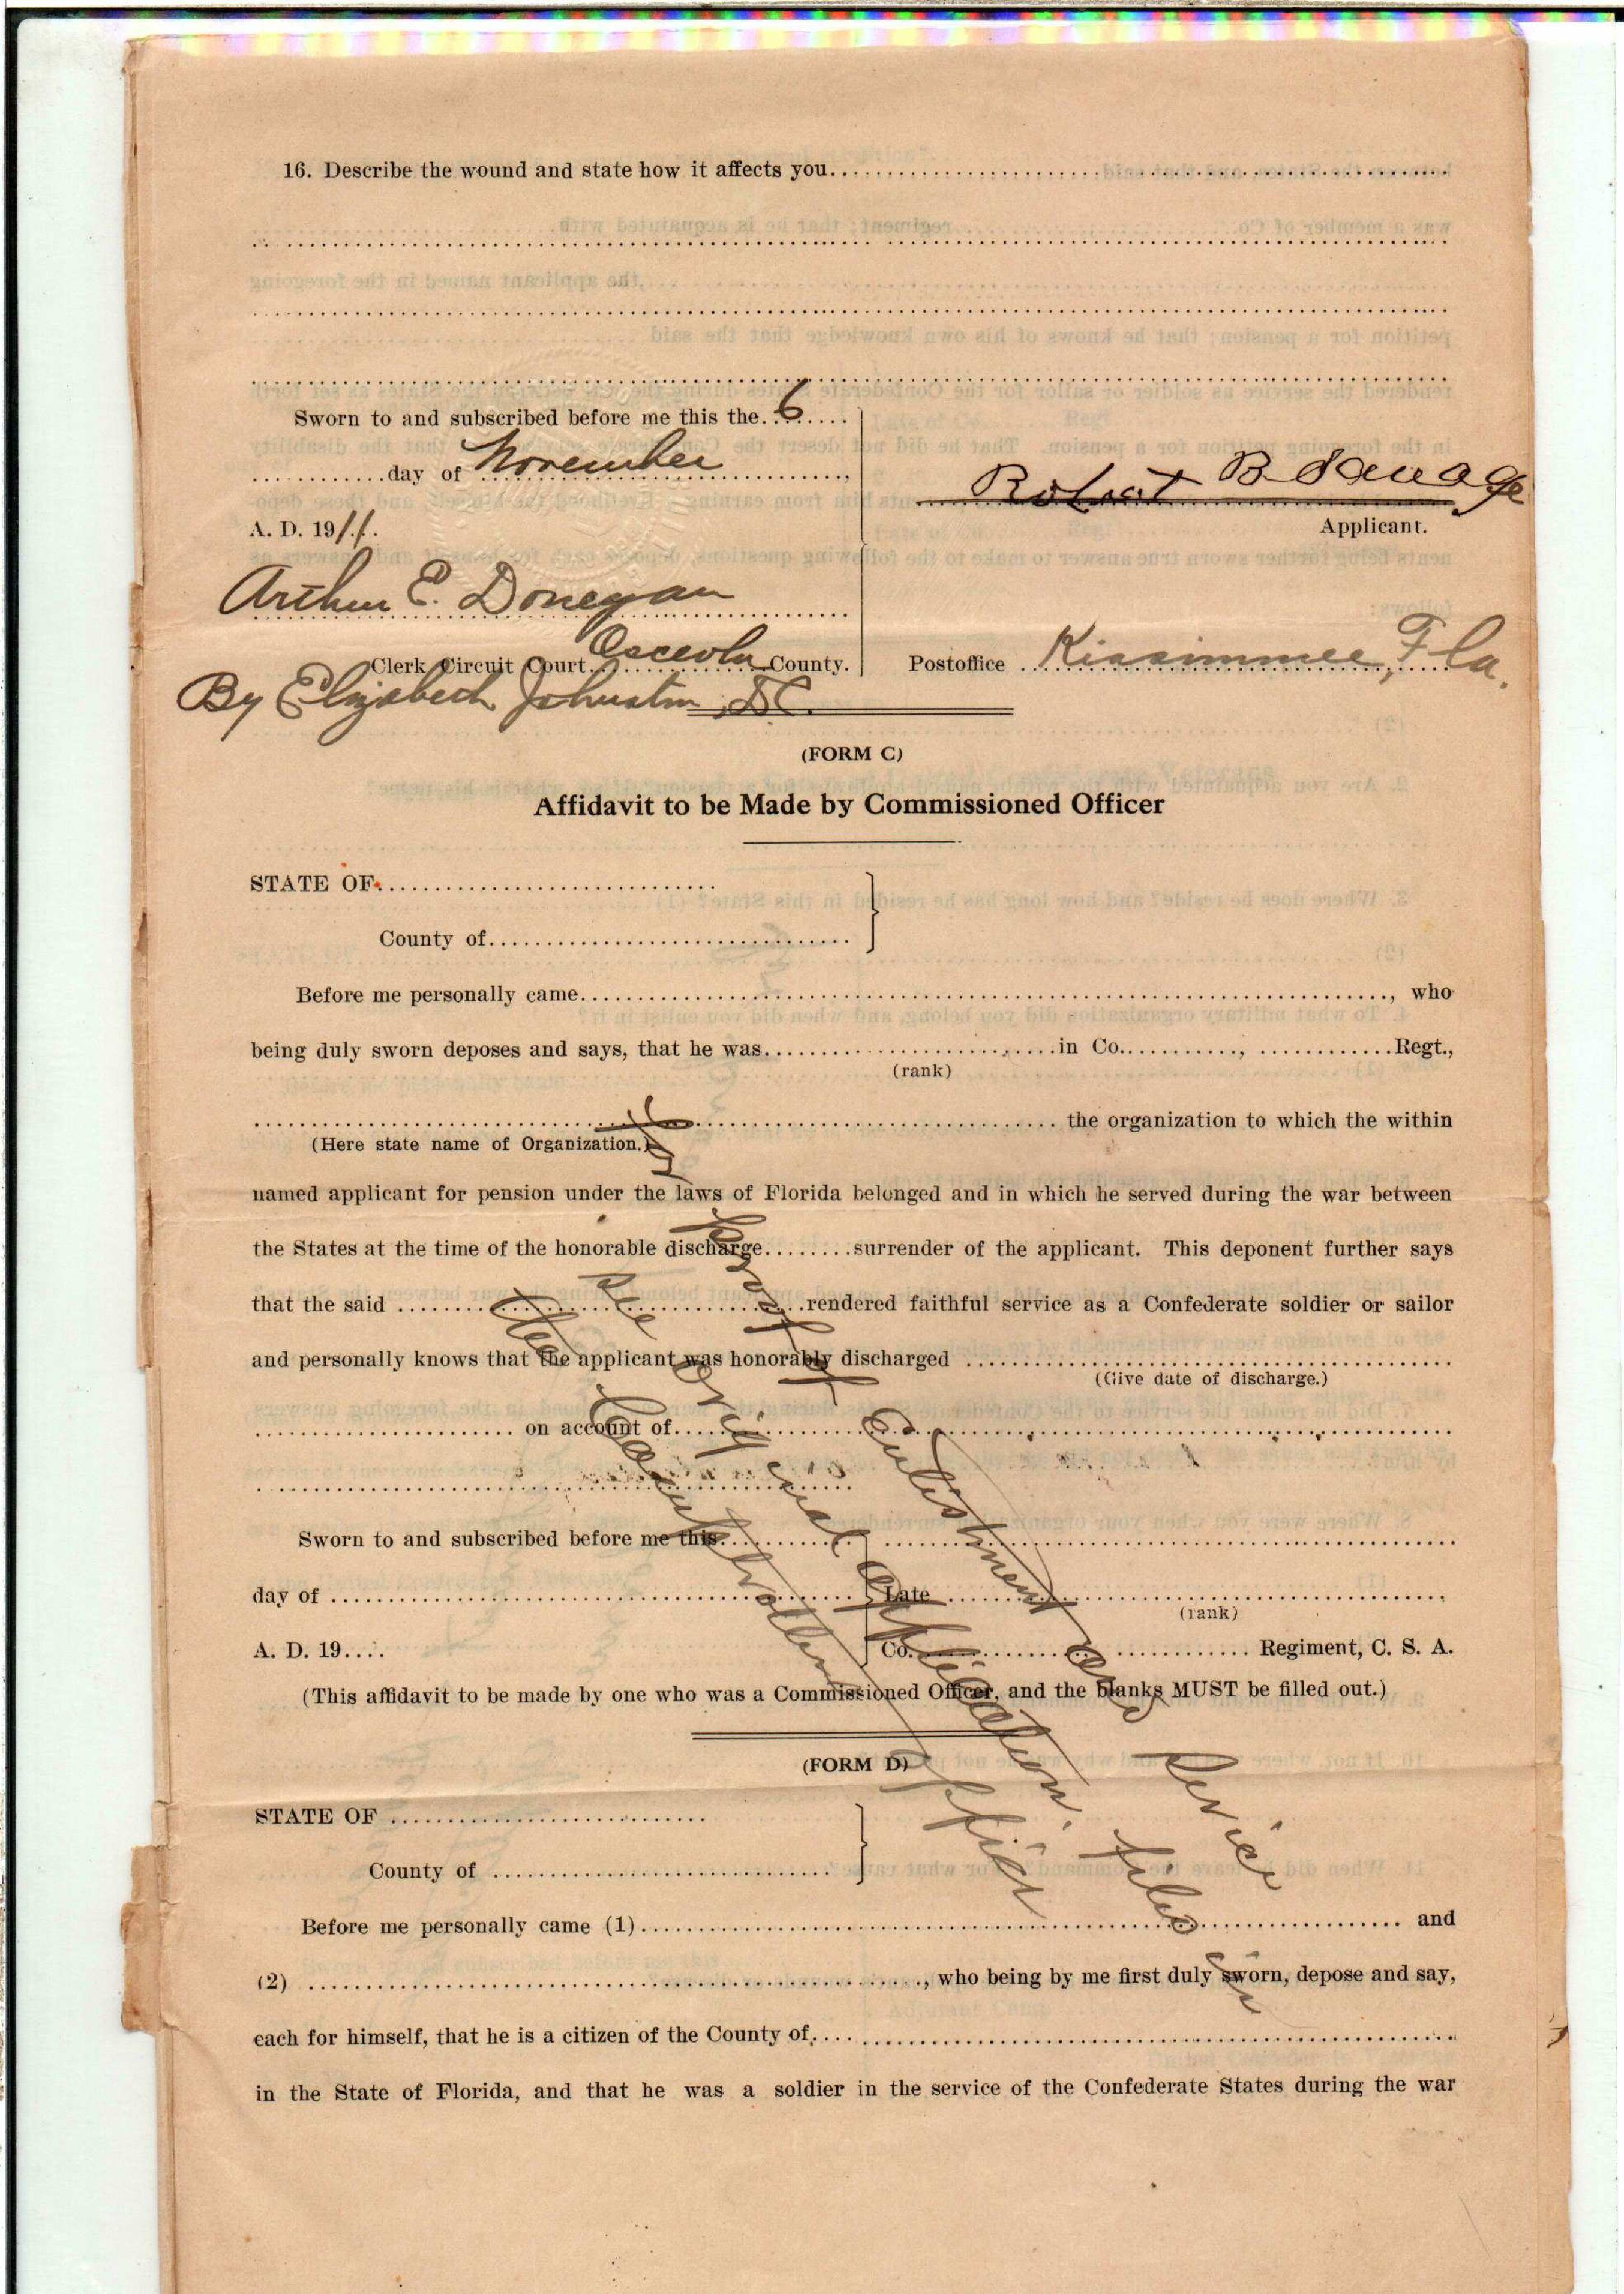 16. Describe the wound and state how it affects you
Sworn to and subscribed before me this the 6
day of November
A. D. 1911.
Robert B Savage
Applicant.
Arthur E. Donegan
Clerk Circuit Court Osceola County.
Postoffice Kissimmee, Fla.
By Elizabeth Johnston, D.C.
(FORM C)
Affidavit to be Made by Commissioned Officer
STATE OF
County of
Before me personally came , who
being duly sworn deposes and says, that he was in Co. , Regt.,
(rank)
the organization to which the within
(Here state name of Organization.)
named applicant for pension under the laws of Florida belonged and in which he served during the war between
the States at the time of the honorable discharge surrender of the applicant. This deponent further says
that the said rendered faithful service as a Confederate soldier or sailor
and personally knows that the applicant was honorably discharged
(Give date of discharge.)
on account of
Sworn to and subscribed before me this
day of
Late
(rank)
A. D. 19
Co. Regiment, C. S. A.
(This affidavit to be made by one who was a Commissioned Officer, and the blanks MUST be filled out.)
of enlistment and service
See original application filed in
office
(FORM D)
STATE OF
County of
Before me personally came (1) and
(2) , who being by me first duly sworn, depose and say,
each for himself, that he is a citizen of the County of
in the State of Florida, and that he was a soldier in the service of the Confederate States during the war